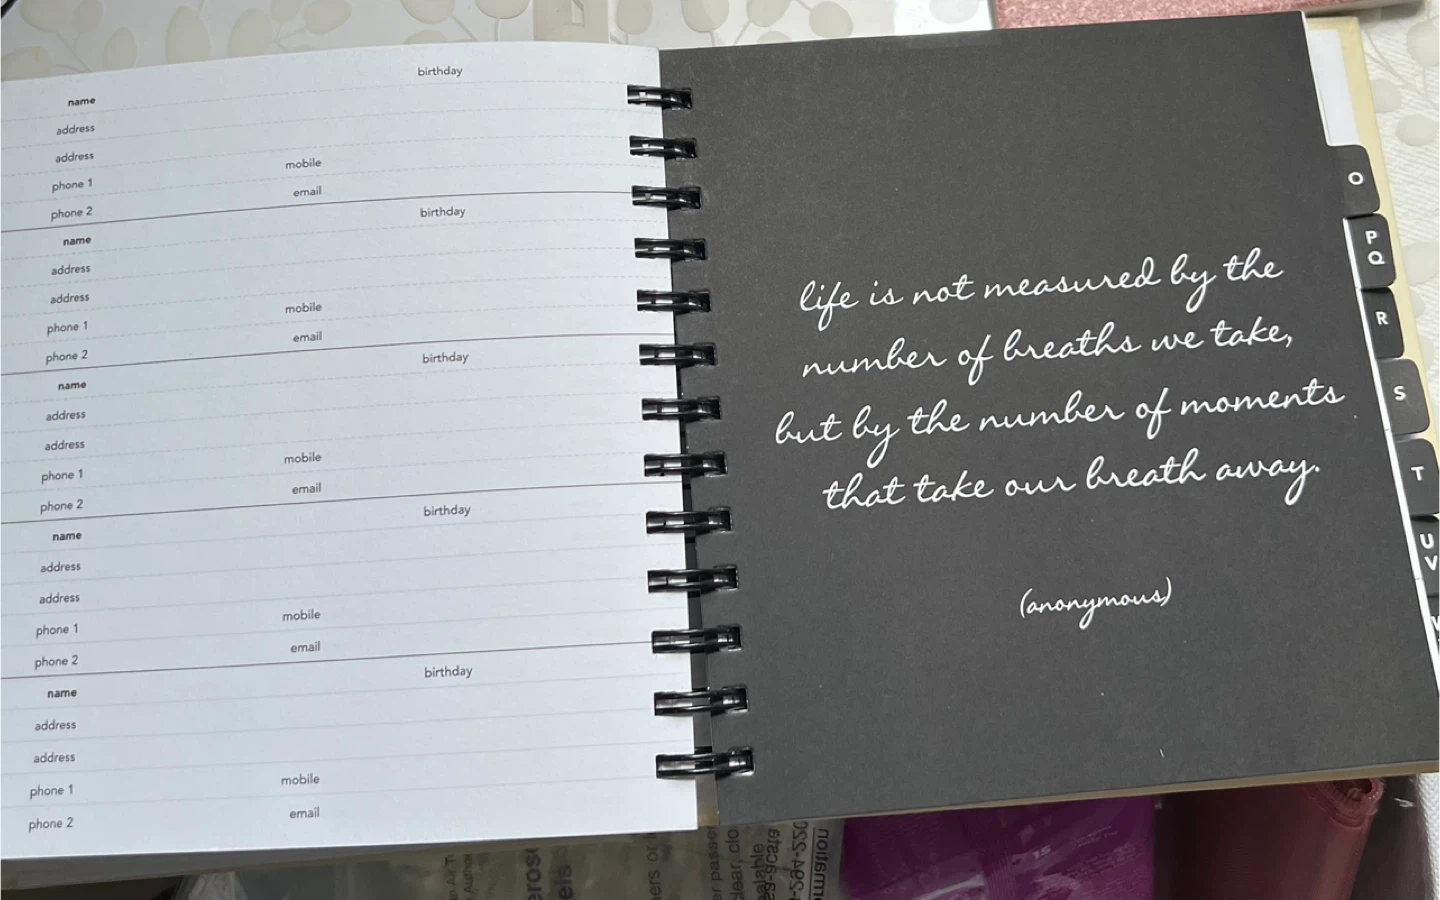 birthday
name
address
address
phone 1
mobile
phone 2
email
birthday
name
address
address
phone 1
mobile
phone 2
email
birthday
name
address
address
phone 1
mobile
phone 2
email
birthday
name
address
address
phone 1
mobile
phone 2
email
birthday
name
address
address
phone 1
mobile
phone 2
email
life is not measured by the
number of breaths we take,
but by the number of moments
that take our breath away.
(anonymous)
O
P
Q
R
S
T
U
V